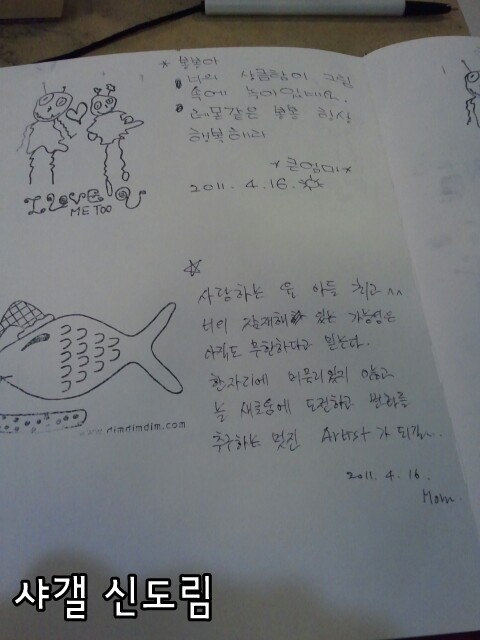 * 뽈뽈아
너의 상큼함이 그림
속에 녹아있네~.
레몬같은 뽈뽈 항상
행복해라
*큰엄마*
2011. 4. 16.
I LOVE U
ME TOO
사랑하는 울 아들 최고^^
너의 잠재해 있는 가능성은
아직도 무한하다고 믿는다.
한자리에 머물러있지 않고
늘 새로움에 도전하고 변화를
추구하는 멋진 Artist가 되길..
2011. 4. 16.
Mom.
www.dimdimdim.com
샤갤 신도림